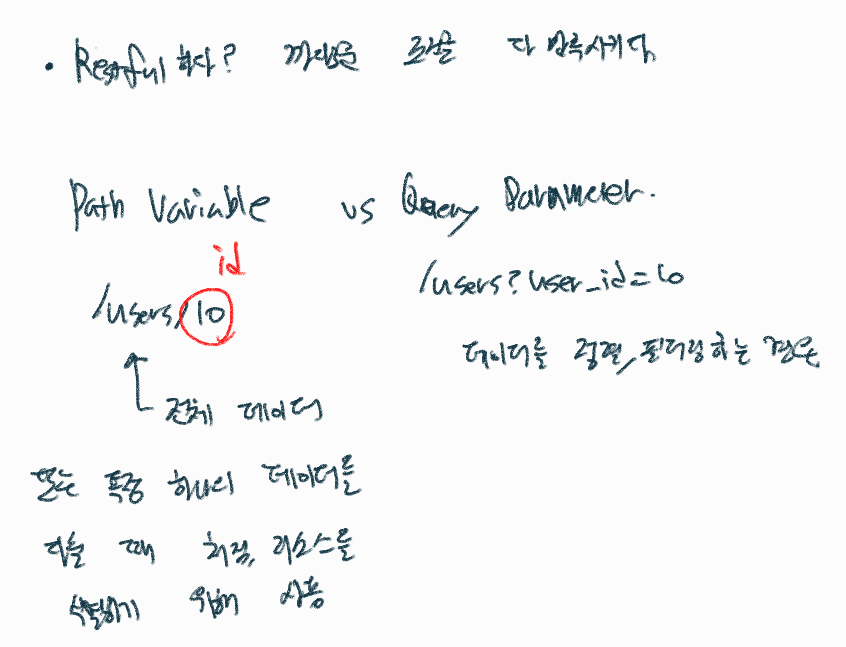 • Restful 하다? 까다로운 조건을 다 만족시키다
Path Variable vs Query Parameter.
id
/users/10
/users?user_id=10
데이터를 정렬, 필터링하는 경우
전체 데이터
또는 특정 하나의 데이터를
다룰 때 처럼, 리소스를
식별하기 위해 사용